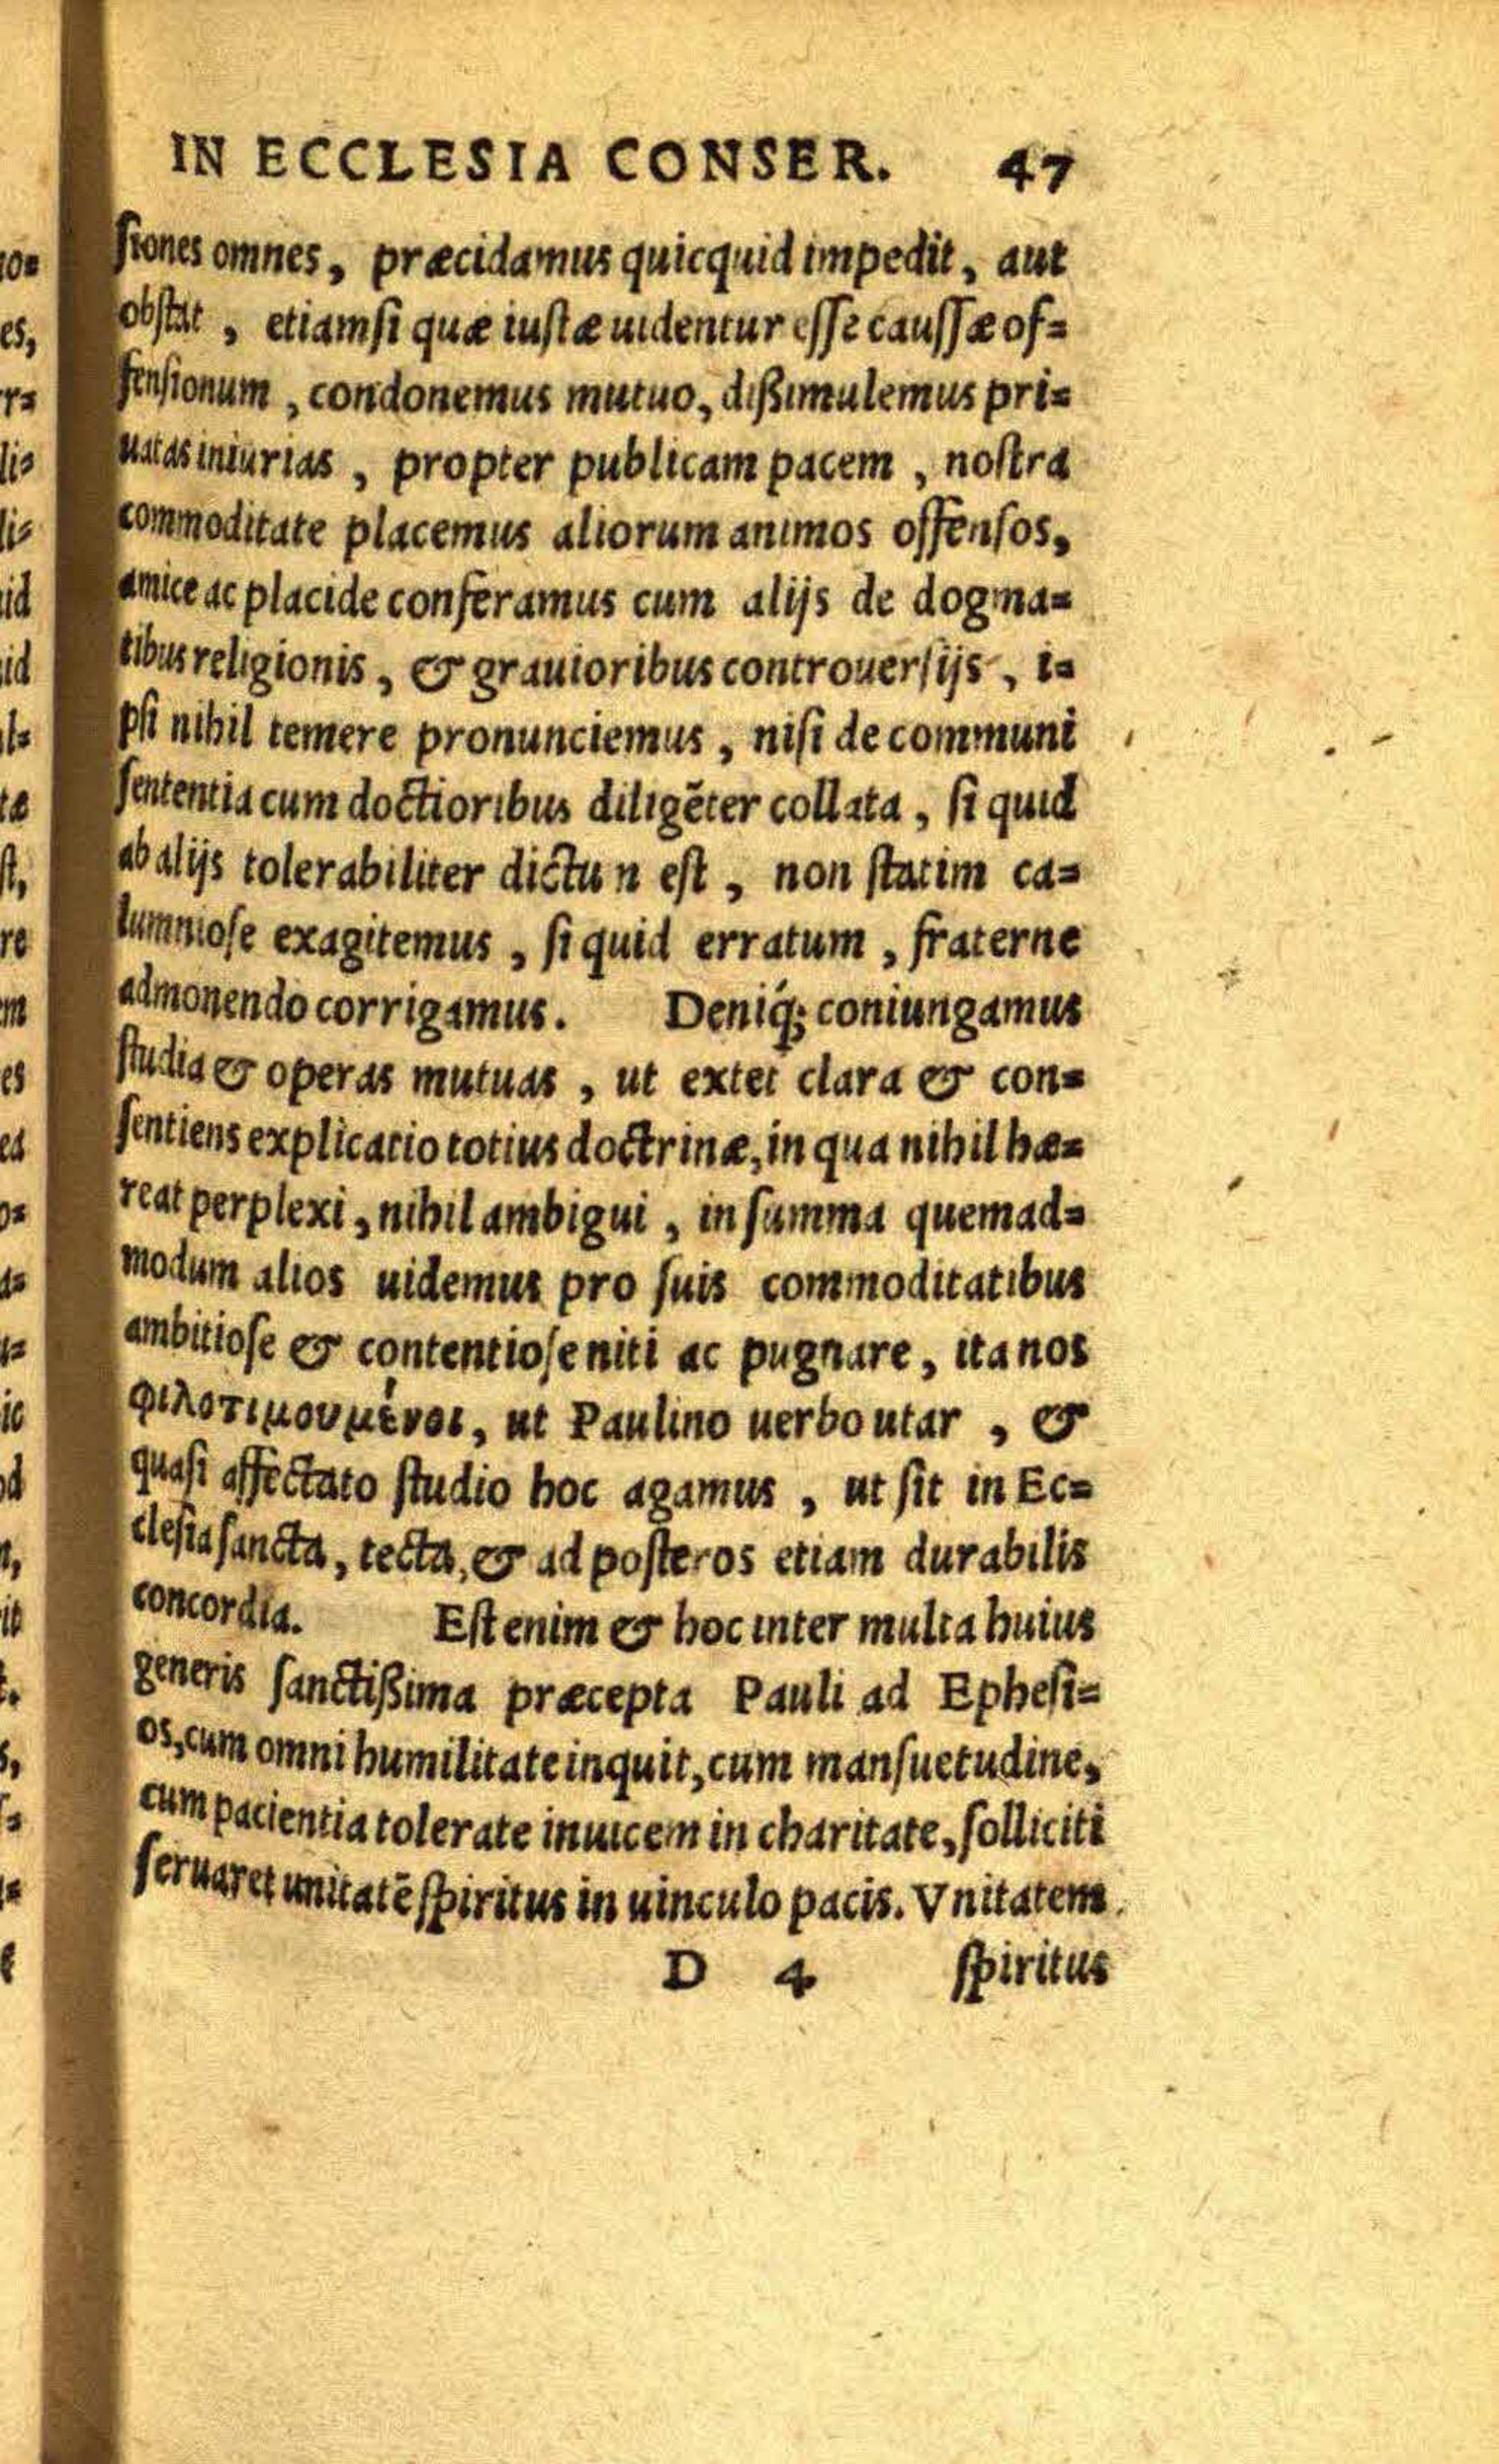 IN ECCLESIA CONSER. 47
ſiones omnes, præcidamus quicquid impedit, aut
obſtat, etiamſi quæ iuſtæ uidentur eſſe cauſſæ of-
fenſionum, condonemus mutuo, dißimulemus pri-
uatas iniurias, propter publicam pacem, noſtra
commoditate placemus aliorum animos offenſos,
amice ac placide conferamus cum alijs de dogma-
tibus religionis, & grauioribus controuerſijs, i-
pſi nihil temere pronunciemus, niſi de communi
ſententia cum doctioribus diligẽter collata, ſi quid
ab alijs tolerabiliter dictu n eſt, non ſtatim ca-
lumnioſe exagitemus, ſi quid erratum, fraterne
admonendo corrigamus. Deniq́; coniungamus
ſtudia & operas mutuas, ut extet clara & con-
ſentiens explicatio totius doctrinæ, in qua nihil hæ-
reat perplexi, nihil ambigui, in ſumma quemad-
modum alios uidemus pro ſuis commoditatibus
ambitioſe & contentioſe niti ac pugnare, ita nos
φιλοτιμουμένοι, ut Paulino uerbo utar, &
quaſi affectato ſtudio hoc agamus, ut ſit in Ec-
cleſia ſancta, tecta, & ad poſteros etiam durabilis
concordia. Eſt enim & hoc inter multa huius
generis ſanctißima præcepta Pauli ad Epheſi-
os, cum omni humilitate inquit, cum manſuetudine,
cum pacientia tolerate inuicem in charitate, ſolliciti
ſeruaret unitatẽ ſpiritus in uinculo pacis. Vnitatem
D 4 ſpiritus